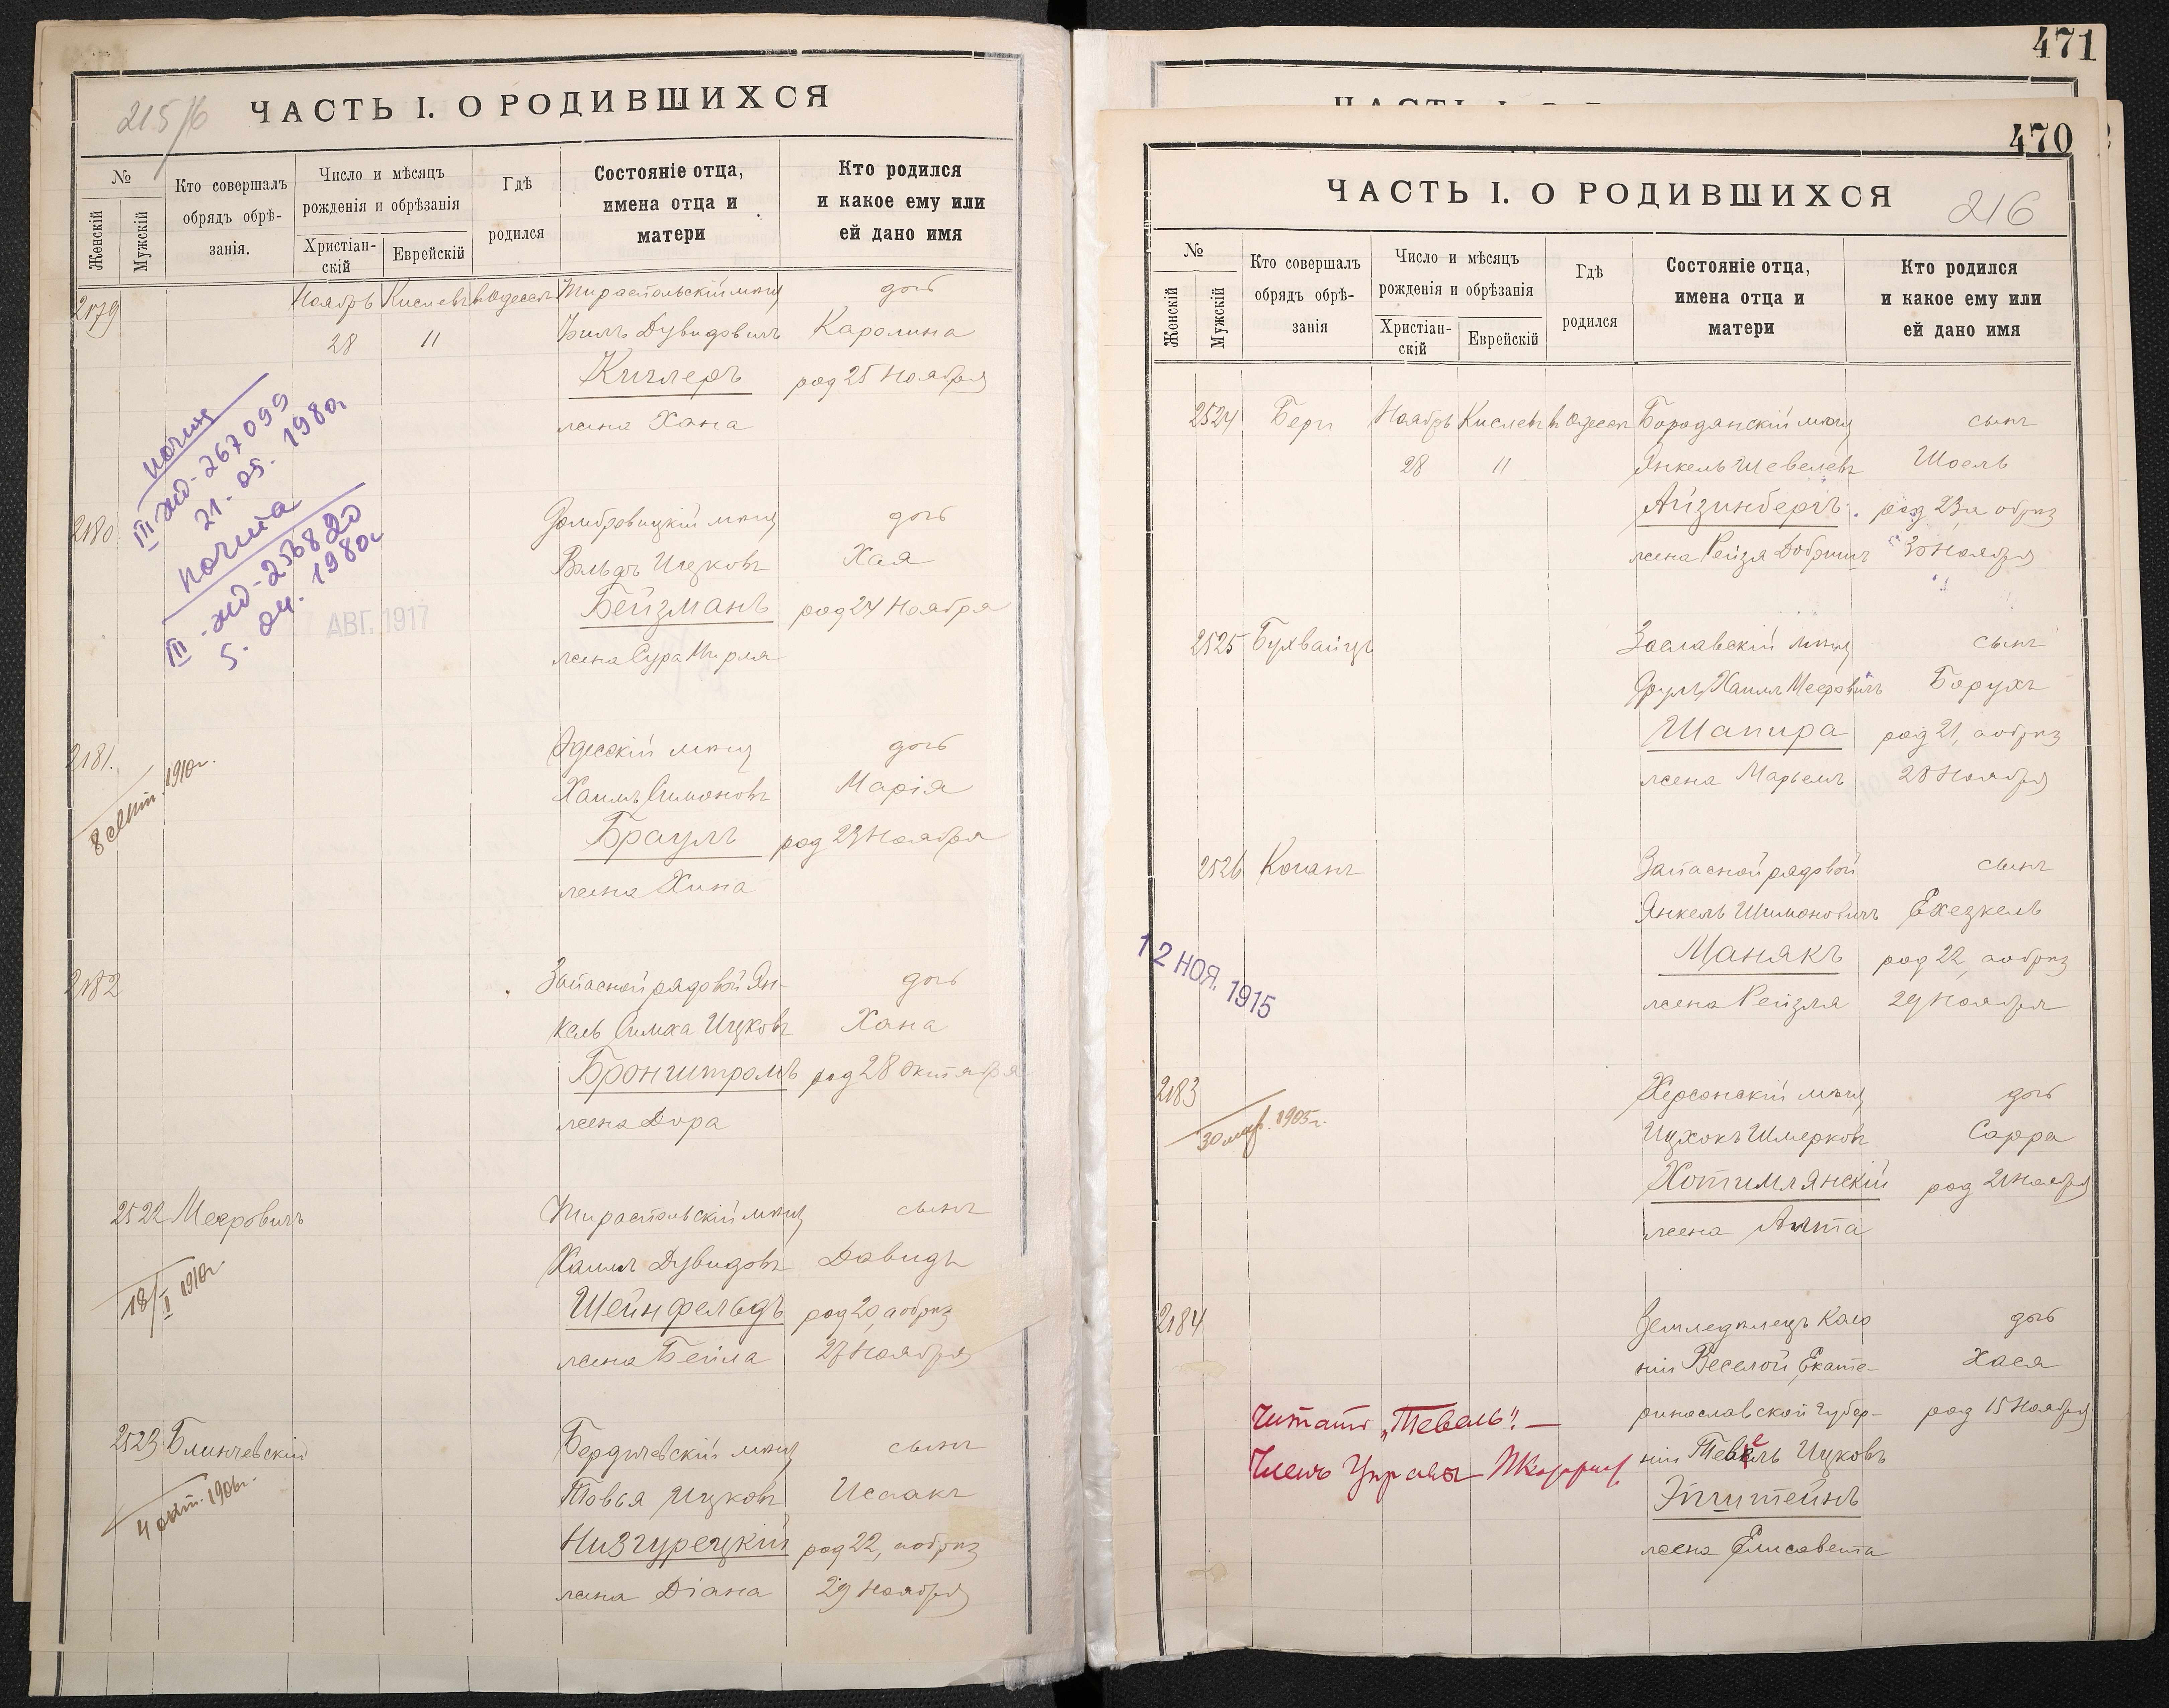 215/6
ЧАСТЬ I. О РОДИВШИХСЯ
№
Женскій
Мужскій
Кто совершалъ обрядъ обрѣ-занія.
Число и мѣсяцъ рожденія и обрѣзанія
Христіан-скій
Еврейскій
Гдѣ родился
Состояніе отца, имена отца и матери
Кто родился и какое ему или ей дано имя
2179 Ноябрь Кислевъ в Одессѣ Тираспольскій мѣщ дочь
28 11 Дувидовичъ Каролина
род 25 Ноября
жена Хана
копия
III ЖД-267099
21.05.1980г
копия
III-ЖД-256820
5.04.1980г
АВГ. 1917
2180 Домбровицкій мѣщ дочь
Вольфъ Ицковъ Хая
Бейзманъ род 24 Ноября
жена Сура Мирля
2181. Одесскій мѣщ дочь
Хаимъ Симоновъ Марія
Браулъ род 23 Ноября
жена Хина
8 сент. 1910г.
2182 Запасной рядовой Ян-дочь
кель Симха Ицковъ Хана
Бронштромъ род 28 Октября
жена Дора
2522 Мееровичъ Тираспольскій мѣщ сынъ
Хаимъ Дувидовъ Давидъ
Шейнфельдъ род 20, а обрѣз
жена Бейла 27 Ноября
18/I 1910г.
2523 Блинчевскій Бердичевскій мѣщ сынъ
Товья Ицковъ Исаакъ
Низгурецкій род 22, а обрѣз
жена Діана 29 Ноября
4 окт. 1906г.
471
470
ЧАСТЬ I. О РОДИВШИХСЯ
216
№
Женскій
Мужскій
Кто совершалъ обрядъ обрѣ-занія
Число и мѣсяцъ рожденія и обрѣзанія
Христіан-скій
Еврейскій
Гдѣ родился
Состояніе отца, имена отца и матери
Кто родился и какое ему или ей дано имя
2524 Берн Ноябрь Кислевъ в Одессѣ Бородянскій мѣщ сынъ
28 11 Янкель Шевелевъ Шоель
Айзинбергъ. род 23, а обрѣз
жена Рейзя Добрышъ 30 Ноября
2525 Бухвайцъ Заславскій мѣщ сынъ
Срулъ Хаимъ Мееровичъ Борухъ
Шапира род 21, а обрѣз
жена Марьемъ 28 Ноября
2526 Коганъ Запасной рядовой сынъ
Янкель Шимоновичъ Ехезкель
Манякъ род 22, а обрѣз
жена Рейзля 29 Ноября
12 НОЯ. 1915
2183 Херсонскій мѣщ дочь
Ицхокъ Шмерковъ Сарра
Хотимлянскій род 21 Ноября
жена Алта
30 мар. 1905г.
2184 Земледѣлецъ Коло дочь
ніи Веселой Екате-Хася
ринославской Губер-род 15 Ноября
ніи Тевель Ицковъ
Эпштейнъ
жена Елисавета
Читать „Тевель“. —
Членъ Управы